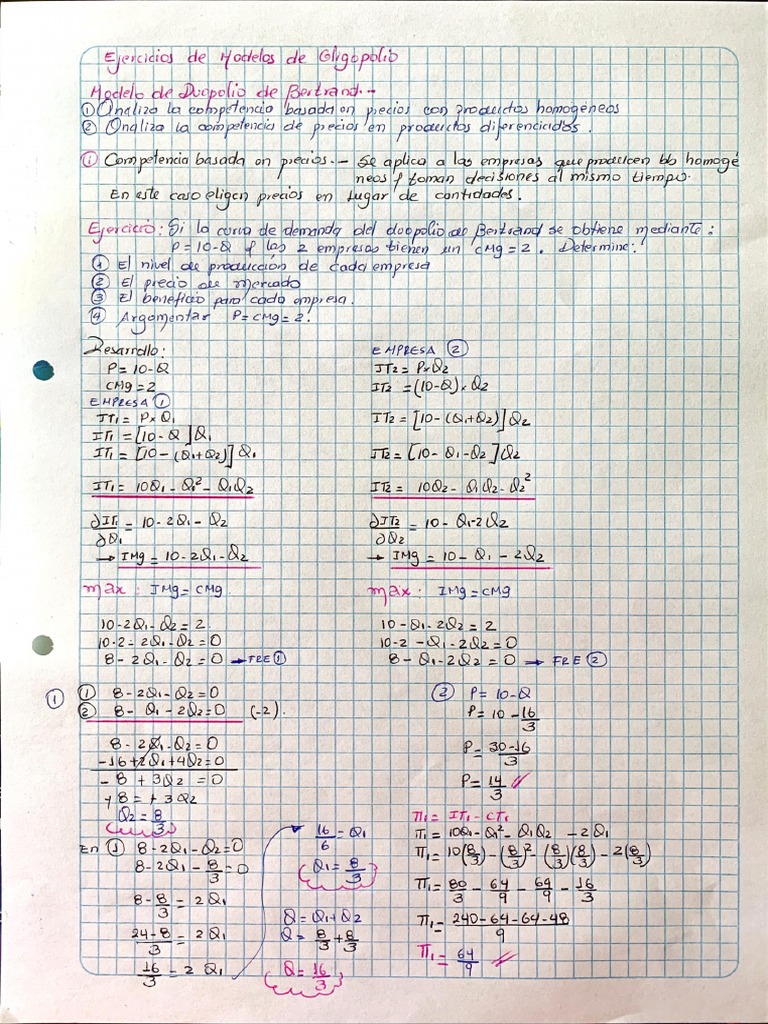 Ejercicios de Modelos de Oligopolio
Modelo de Duopolio de Bertrand.-
① Analiza la competencia basada en precios con productos homogéneos
② Analiza la competencia de precios en productos diferenciados.
① Competencia basada en precios.- Se aplica a las empresas que producen bb homogé
neos y toman decisiones al mismo tiempo.
En este caso eligen precios en lugar de cantidades.
Ejercicio: Si la curva de demanda del duopolio de Bertrand se obtiene mediante:
P=10-Q y las 2 empresas tienen un CMg=2. Determine:
① El nivel de producción de cada empresa
② El precio de mercado
③ El beneficio para cada empresa.
④ Argumentar P=CMg=2.
Desarrollo:
P=10-Q
CMg=2
EMPRESA ①
IT₁ = P×Q₁
IT₁ = [10-Q]Q₁
IT₁ = [10-(Q₁+Q₂)]Q₁
IT₁ = 10Q₁-Q₁²-Q₁Q₂
∂IT₁/∂Q₁ = 10-2Q₁-Q₂
→ IMg = 10-2Q₁-Q₂
max: IMg = CMg.
10-2Q₁-Q₂ = 2
10-2-2Q₁-Q₂ = 0
8-2Q₁-Q₂ = 0 → FRE ①
EMPRESA ②
IT₂ = P×Q₂
IT₂ = (10-Q)×Q₂
IT₂ = [10-(Q₁+Q₂)]Q₂
IT₂ = [10-Q₁-Q₂]Q₂
IT₂ = 10Q₂-Q₁Q₂-Q₂²
∂IT₂/∂Q₂ = 10-Q₁-2Q₂
→ IMg = 10-Q₁-2Q₂
máx: IMg = CMg
10-Q₁-2Q₂ = 2
10-2-Q₁-2Q₂ = 0
8-Q₁-2Q₂ = 0 → FRE ②
①
① 8-2Q₁-Q₂ = 0
② 8-Q₁-2Q₂ = 0 (-2).
8-2Q₁-Q₂ = 0
-16+2Q₁+4Q₂ = 0
-8+3Q₂ = 0
+8 = +3Q₂
Q₂ = 8/3
En ① 8-2Q₁-Q₂ = 0
8-2Q₁-8/3 = 0
8-8/3 = 2Q₁
24-8/3 = 2Q₁
16/3 = 2Q₁
16/6 = Q₁
Q₁ = 8/3
Q = Q₁+Q₂
Q = 8/3+8/3
Q = 16/3
② P = 10-Q
P = 10-16/3
P = 30-16/3
P = 14/3
π₁ = IT₁-CT₁
π₁ = 10Q₁-Q₁²-Q₁Q₂-2Q₁
π₁ = 10(8/3)-(8/3)²-(8/3)(8/3)-2(8/3)
π₁ = 80/3-64/9-64/9-16/3
π₁ = 240-64-64-48/9
π₁ = 64/9